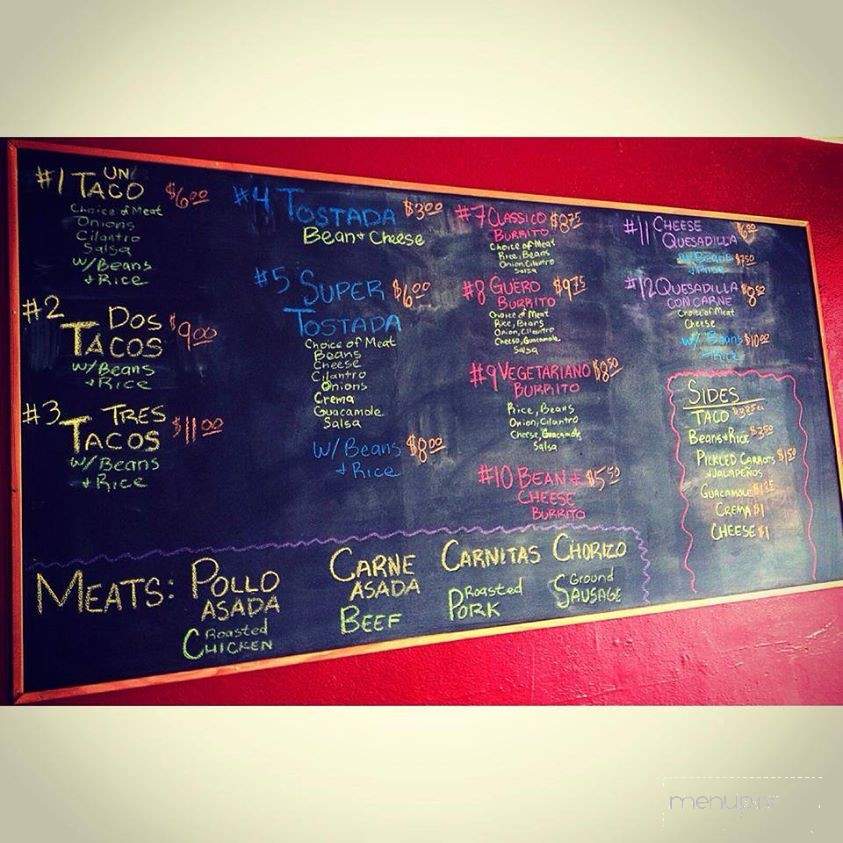 #1 UN TACO $6.00
Choice of Meat
Onions
Cilantro
Salsa
w/Beans
+ Rice
#2 DOS $9.00
TACOS
w/Beans
+ Rice
#3 TRES $11.00
TACOS
w/Beans
+ Rice
#4 TOSTADA $3.00
Bean + Cheese
#5 SUPER $6.00
TOSTADA
Choice of Meat
Beans
Cheese
Cilantro
Onions
Crema
Guacamole
Salsa
w/Beans $8.00
+ Rice
#7 CLASSICO $8.75
BURRITO
Choice of Meat
Rice, Beans
Onion, Cilantro
Salsa
#8 GUERO $9.75
BURRITO
Choice of Meat
Rice, Beans
Onion, Cilantro
Cheese, Guacamole
Salsa
#9 VEGETARIANO $8.50
BURRITO
Rice, Beans
Onion, Cilantro
Cheese, Guacamole
Salsa
#10 BEAN + $5.50
CHEESE
BURRITO
#11 CHEESE
QUESADILLA
w/Beans $7.50
+ Rice
#12 QUESADILLA $8.50
CON CARNE
Choice of Meat
Cheese
w/Beans $10.00
+ Rice
SIDES
TACO
Beans + Rice $3.50
PICKLED CARROTS $1.50
+ JALAPEÑOS
GUACAMOLE
CREMA $1
CHEESE $1
MEATS: POLLO ASADA
Roasted
CHICKEN
CARNE
ASADA
BEEF
CARNITAS
Roasted
PORK
CHORIZO
Ground
SAUSAGE